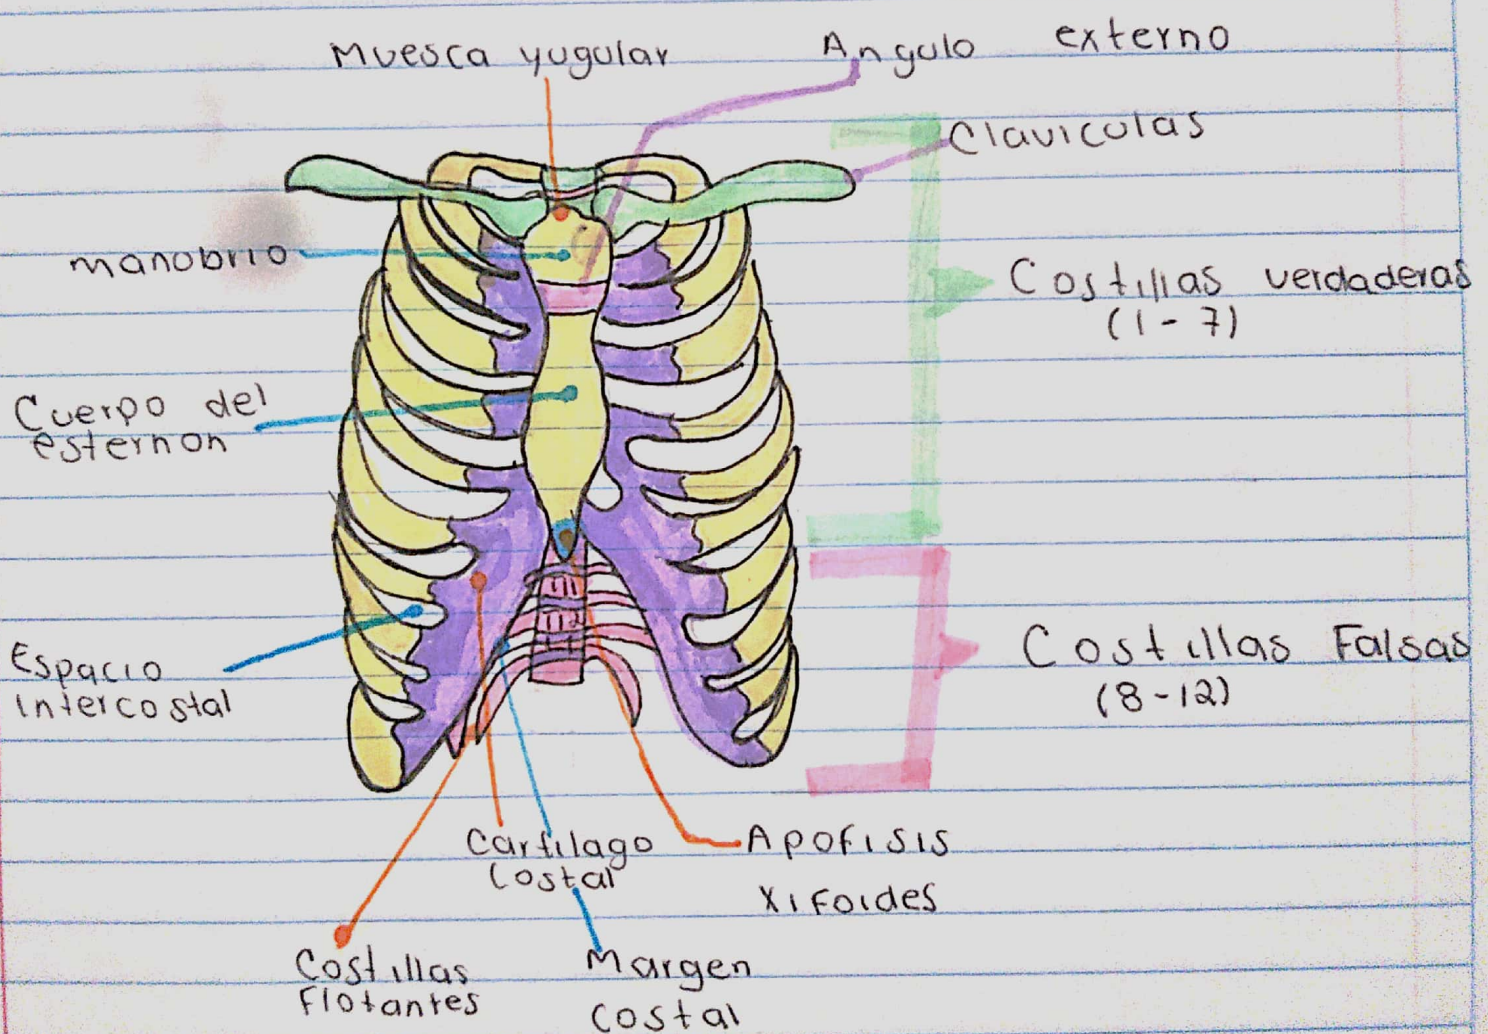 Muesca yugular
Angulo externo
Claviculas
manobrio
Costillas verdaderas
(1-7)
Cuerpo del
esternon
Espacio
intercostal
Costillas Falsas
(8-12)
Cartilago
Costal
Apofisis
xifoides
Costillas
Flotantes
Margen
costal